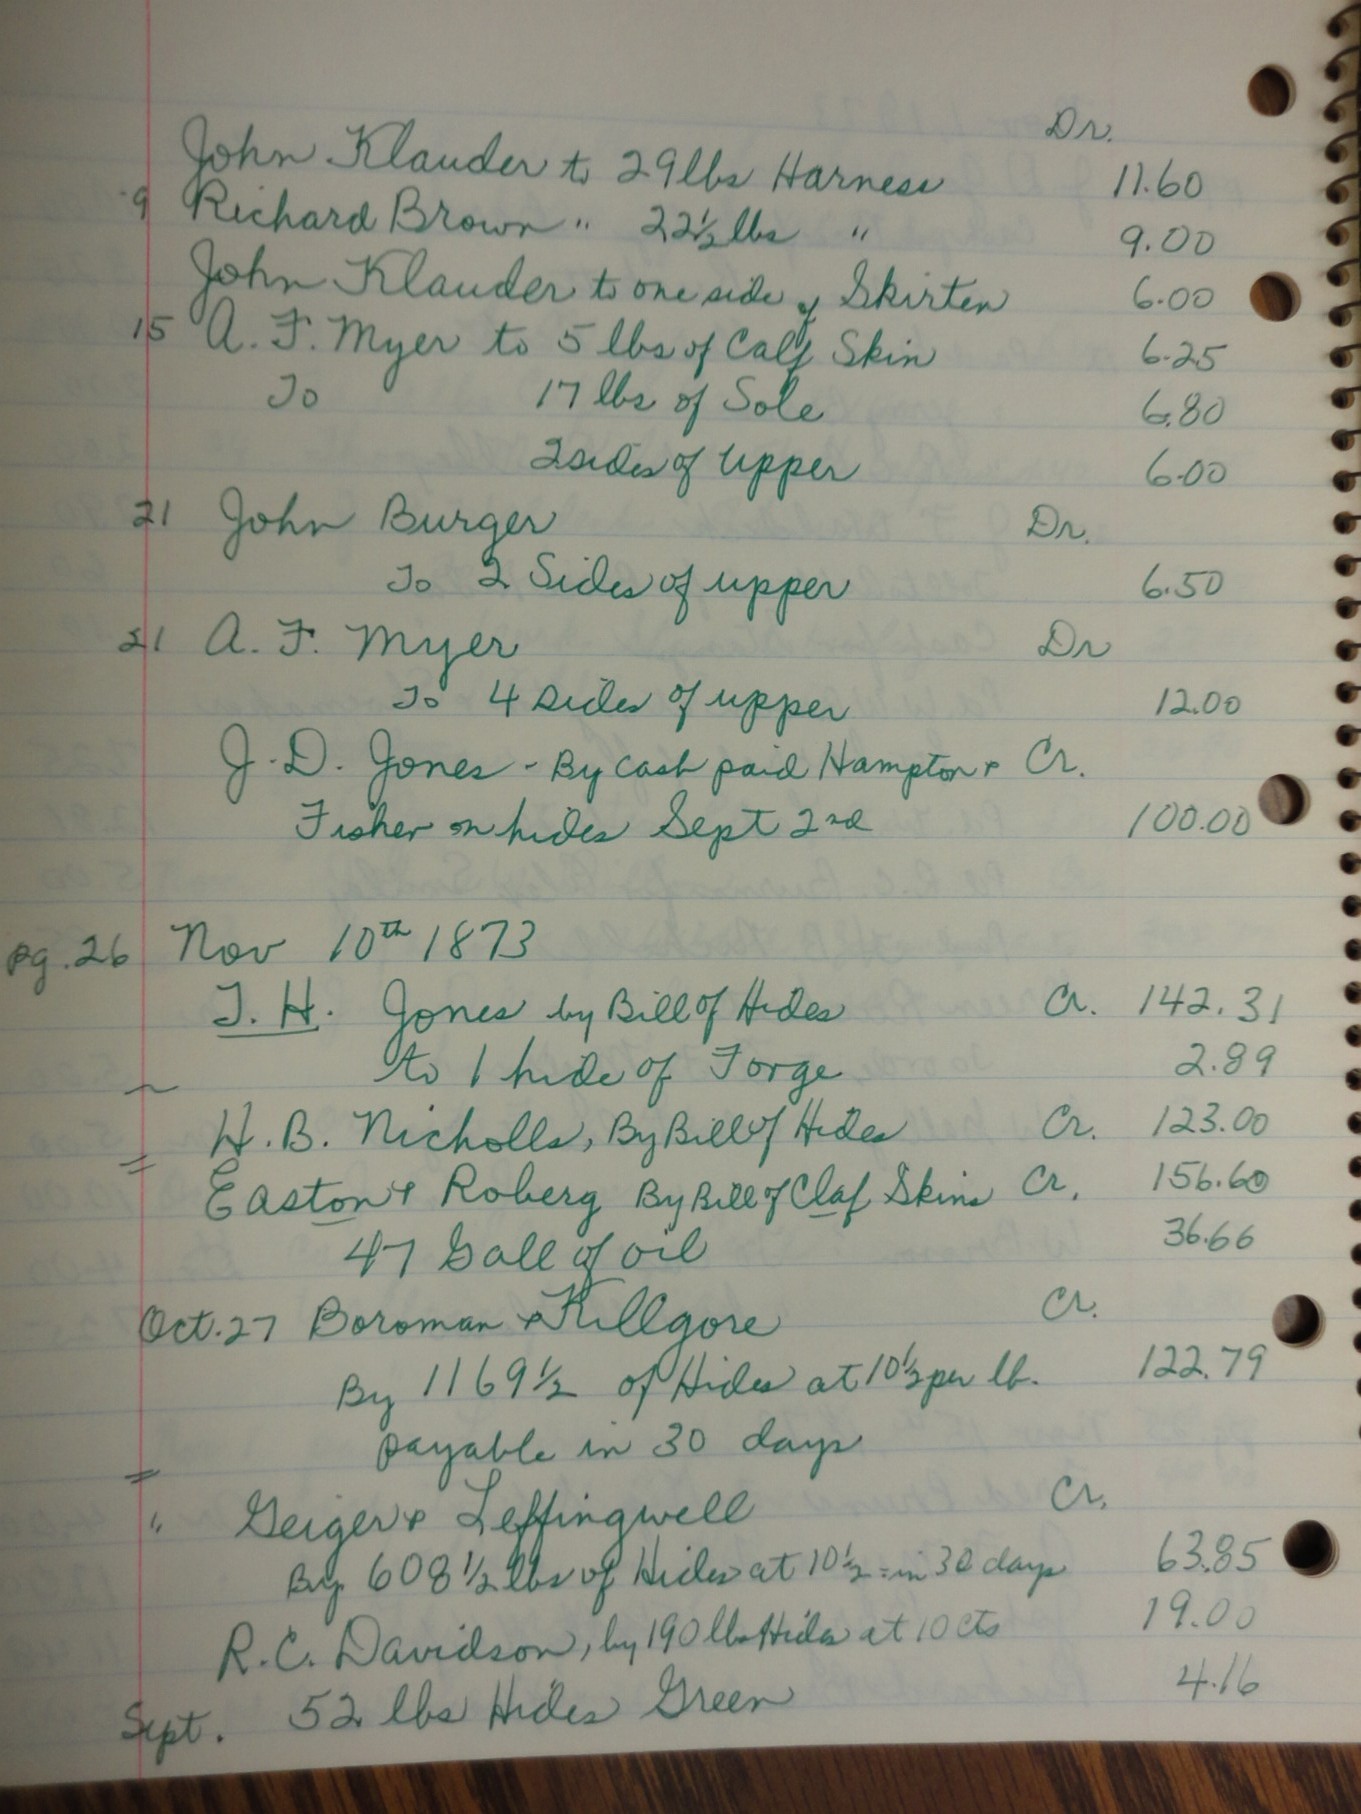 Dr.
John Klauder to 29 lbs Harness 11.60
9 Richard Brown " 22½ lbs " 9.00
John Klauder to one side of Skirten 6.00
15 A. F. Myer to 5 lbs of Calf Skin 6.25
To 17 lbs of Sole 6.80
2 sides of upper 6.00
21 John Burger Dr.
To 2 Sides of upper 6.50
21 A. F. Myer Dr
To 4 sides of upper 12.00
J. D. Jones - By cash paid Hampton & Cr.
Fisher on hides Sept 2nd 100.00
pg. 26 Nov 10th 1873
T. H. Jones by Bill of Hides Cr. 142.31
to 1 hide of Forge 2.89
H. B. Nicholls, By Bill of Hides Cr. 123.00
Easton & Roberg By Bill of Claf Skins Cr. 156.60
47 Gall of oil 36.66
Oct. 27 Boroman & Killgore Cr.
By 1169½ of Hides at 10½ per lb. 122.79
payable in 30 days
" Geiger & Leffingwell Cr.
By 608½ lbs of Hides at 10½ = in 30 days 63.85
R. C. Davidson, by 190 lbs Hides at 10 cts 19.00
Sept. 52 lbs Hides Green 4.16